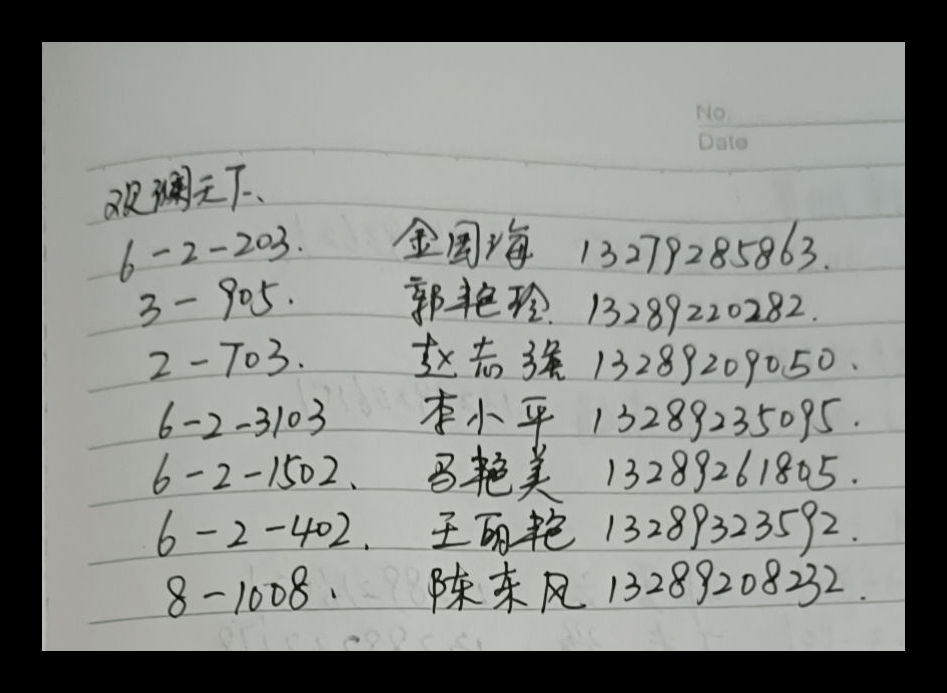 No.
Date
观澜天下、
6-2-203. 金国海 13279285863.
3-905. 郭艳玲 13289220282.
2-703. 赵志强 13289209050.
6-2-3103 李小平 13289235095.
6-2-1502、 马艳美 13289261805.
6-2-402. 王丽艳 13289323592.
8-1008. 陈东风 13289208232.